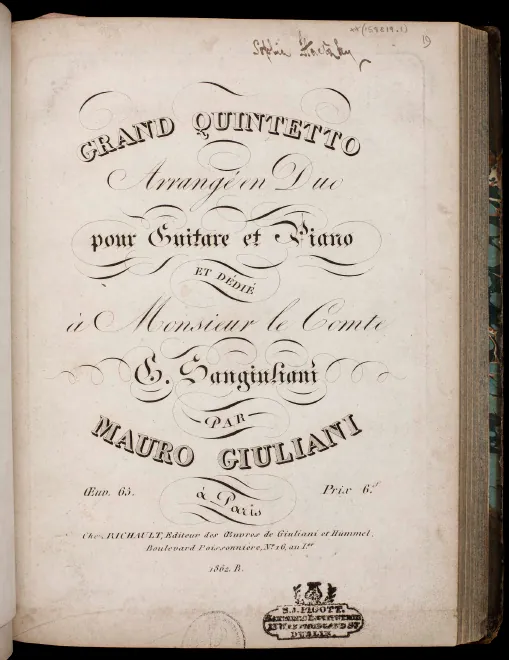 19
Sophie
GRAND QUINTETTO
Arrangé en Duo
pour Guitare et Piano
ET DÉDIÉ
à Monsieur le Comte
G. Sangiuliani
PAR
MAURO GIULIANI
Œuv. 65. Prix 6.f
à Paris
Chez RICHAULT, Editeur des Œuvres de Giuliani et Hummel,
Boulevard Poissonniere, No. 16, au 1.er
1862. R.
S.J. PIGOTT.
DUBLIN.